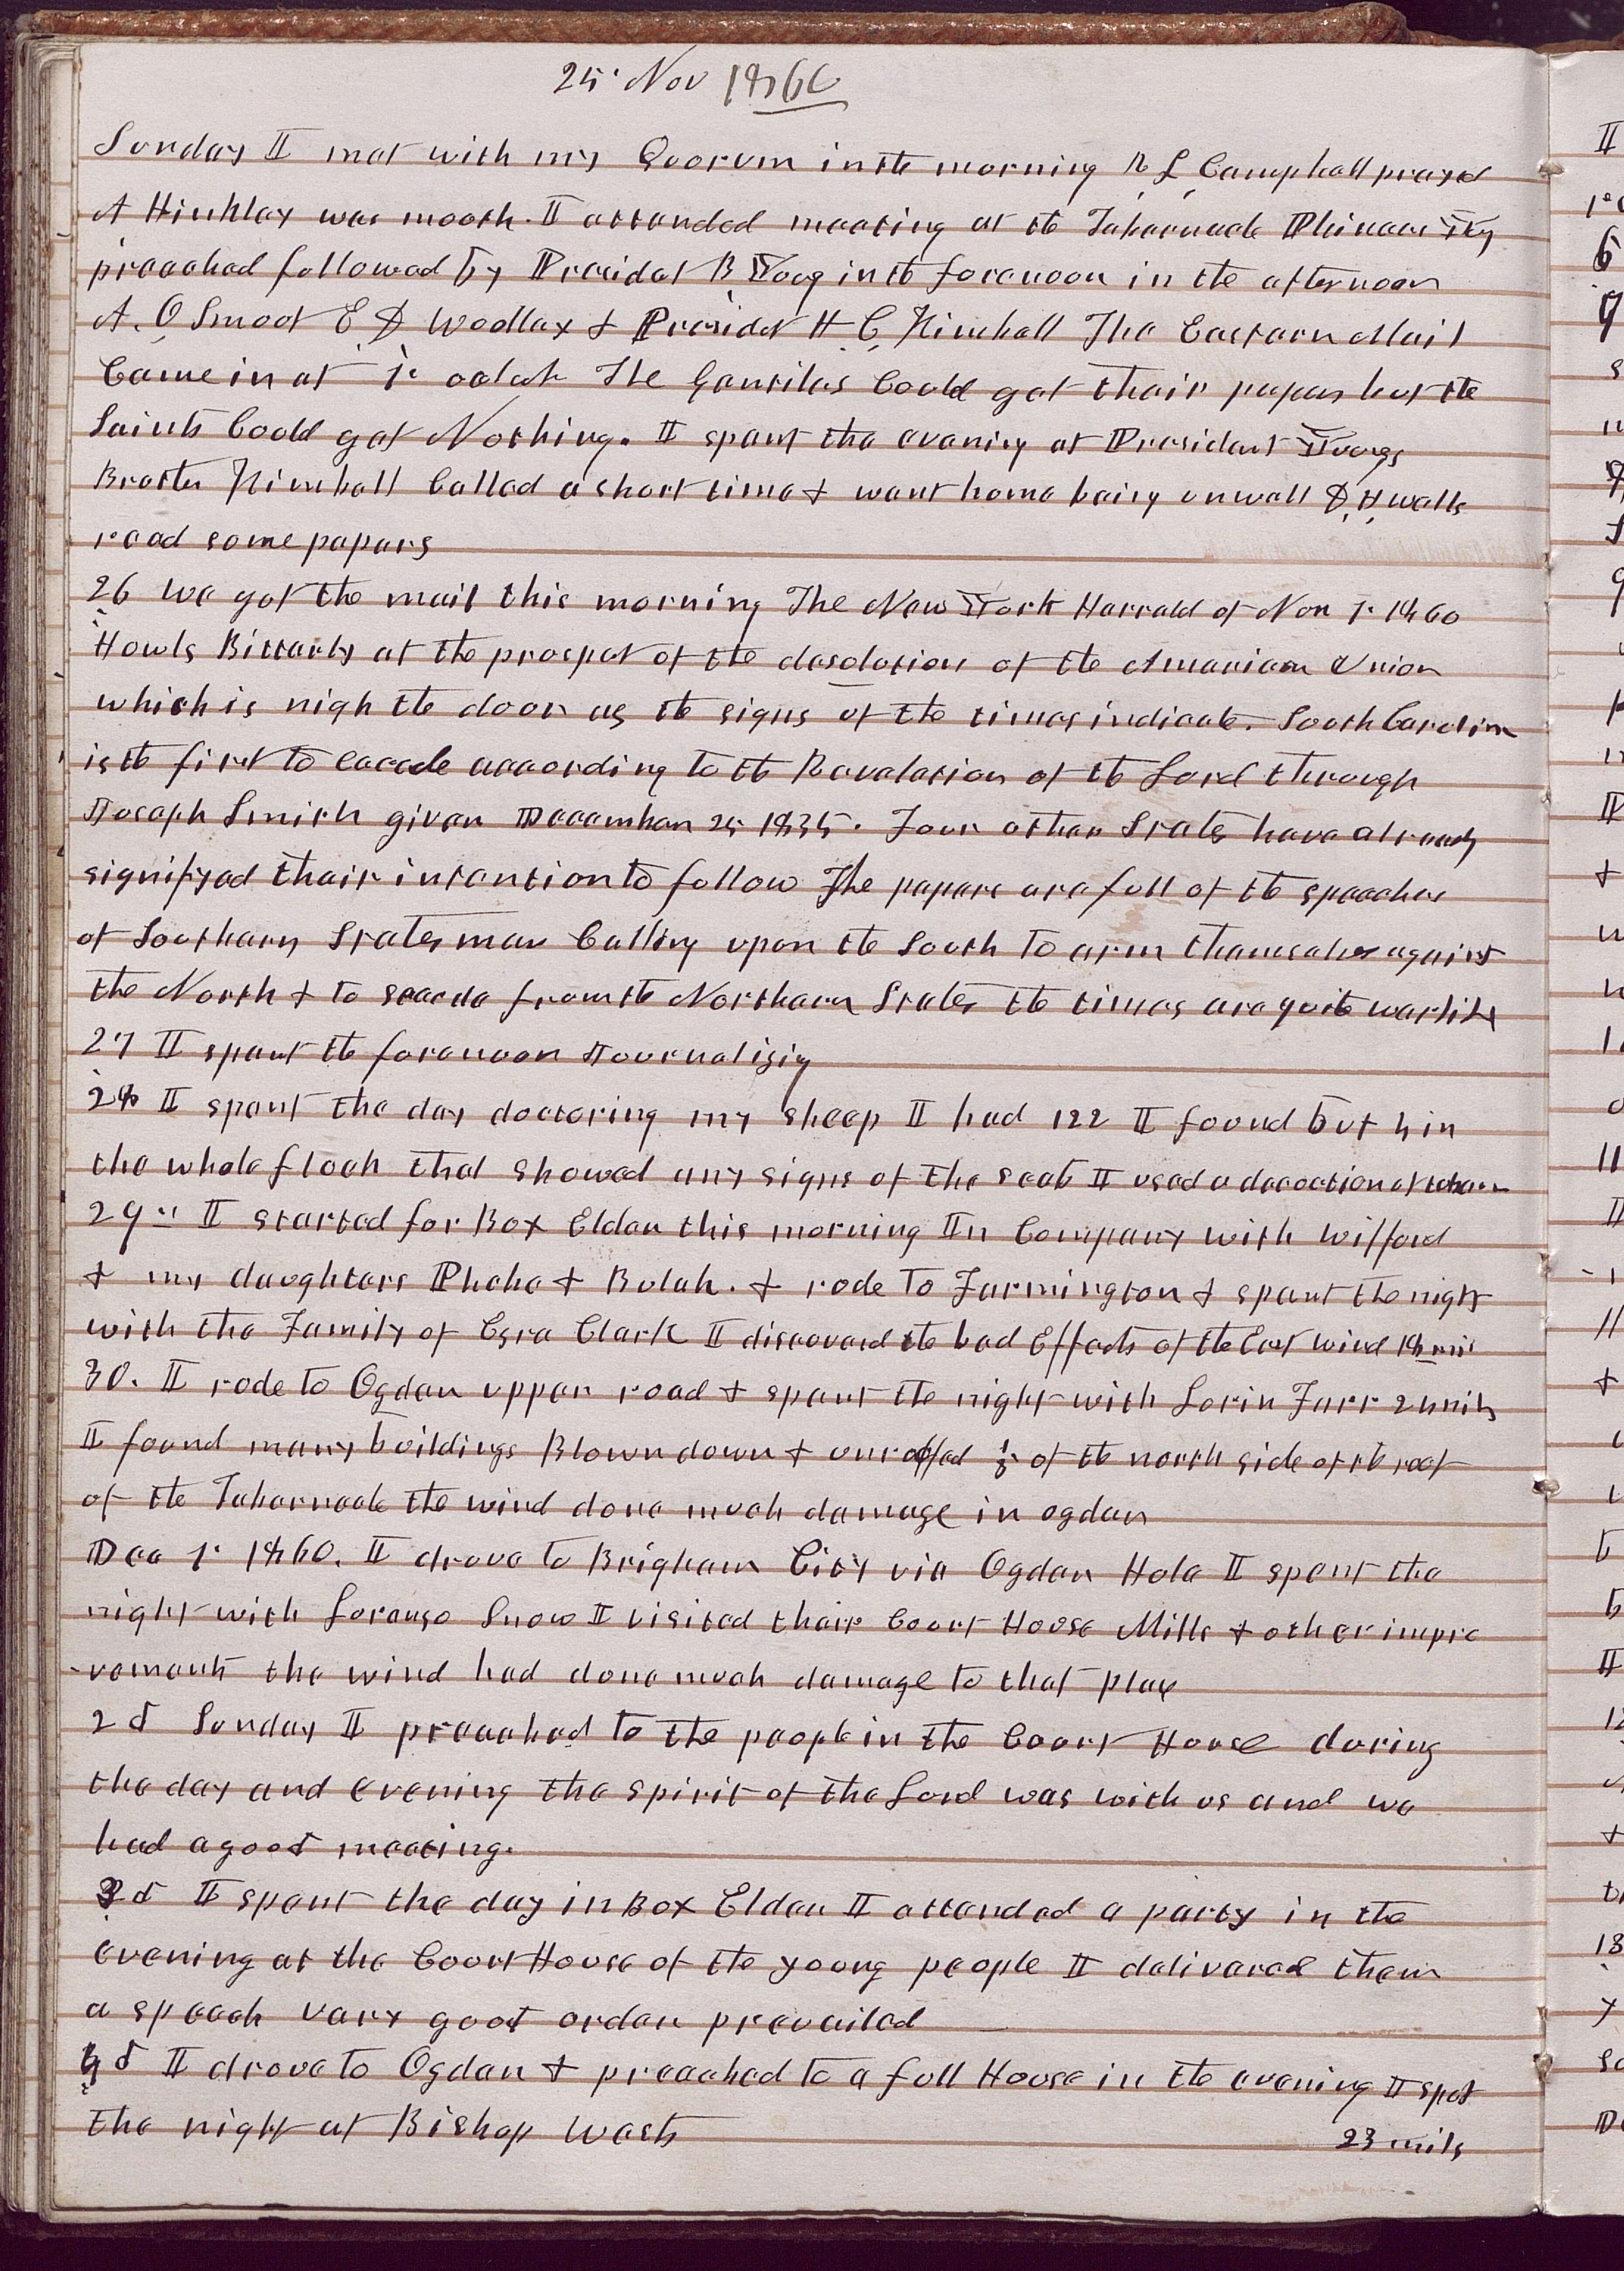 25' Nov 1860
Sunday I met with my Quorum in the morning R L Campbell prayed
A Hinkley was mouth. I attended meeting at the Tabernacle Phineas Yg
preached followed by Presidet B Youg in the forenoon in the afternoon
A. O Smoot E D Woolley & Presidet H C Kimball The Eastern Mail
Came in at 1 oclok The Gentiles Could get their papers but the
Saints Could get Nothing. I spent the evening at President Youngs
Broter Kimball Called a short time & went home being unwell D. H wells
read some papers
26 We got the mail this morning The New York Herrald of Nov 1 1860
Howls Bitterly at the prospet of the desolation of the American Union
which is nigh the door as the signs of the times indicate. South Carolina
is the first to cecede according to the Revelation of the Lord through
Joseph Smith given December 25 1835. Four other States have already
signifyed their intention to follow The papers are full of the speeches
of Southern States men Calling upon the South to arm themselves against
the North & to secede from the Northern States the times are quite warlike
27 I spent the forenoon Journalizig
28 I spent the day doctoring my sheep I had 122 I found but 4 in
the whole flock that showed any signs of the scab I used a decoction of tobacco
29'' I started for Box Elder this morning In Company with Wilford
& my daughters Phebe & Bulah. & rode to Farmington & spent the night
with the Family of Ezra Clark I discoverd the bad Effects of the East wind 18 mil
30. I rode to Ogden upper road & spent the night with Lorin Farr 24 mils
I found many buildings Blown down & unroffed ⅓ of the north side of the roof
of the Tabernacle the wind done much damage in ogden
Dec 1 1860. I drove to Brigham City via Ogden Hole I spent the
night with Loranzo Snow I visited their Court House Mills & other impro
-vements the wind had done much damage to that place
2d Sunday I preached to the people in the Court House during
the day and evening the spirit of the Lord was with us and we
had a good meeting.
3d I spent the day in Box Elder I attended a party in the
evening at the Court House of the young people I delivered them
a speech very good order prevailed
4d I drove to Ogden & preached to a full House in the evening I spet
the night at Bishop Wests
23 mils